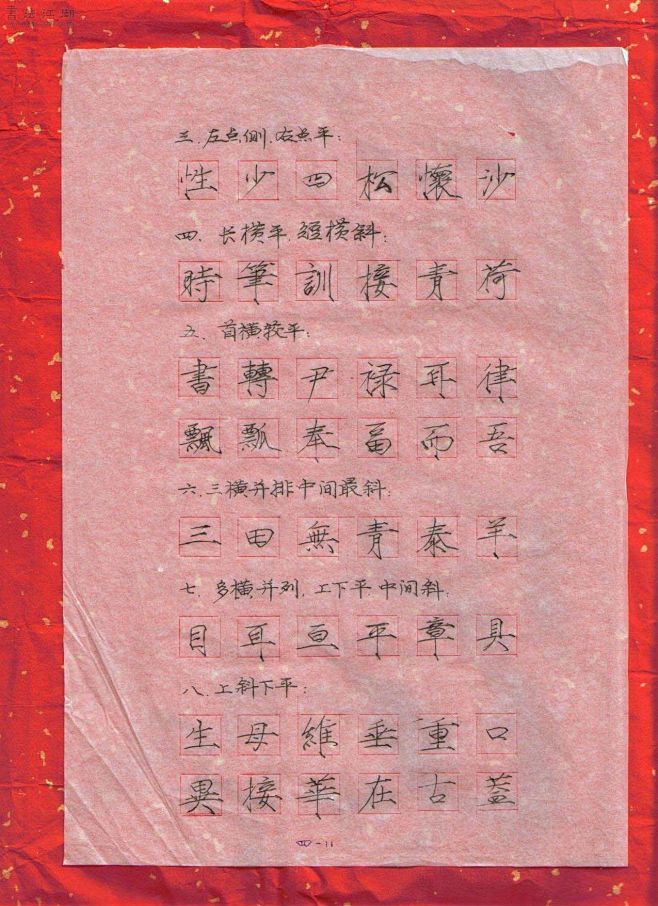 書法江湖
三、左点侧、右点平：
性少四松懷沙
四、长横平，短横斜：
時筆訓接青荷
五、首横较平：
書轉尹禄耳律
飄瓢奉畐而吾
六、三横并排中间最斜：
三田無青泰羊
七、多横并列，上下平中间斜.
目耳亘平章具
八、上斜下平：
生母維垂重口
異接華在古蓋
四-11